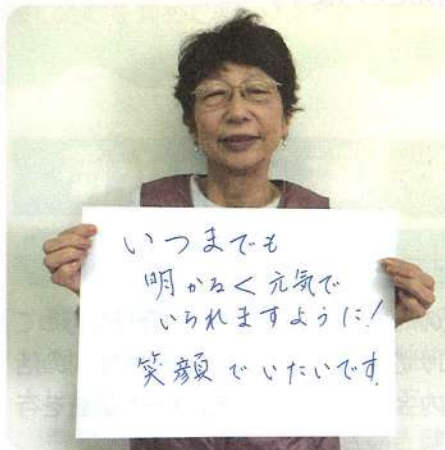 いつまでも
明かるく元気で
いられますように!
笑顔でいたいです